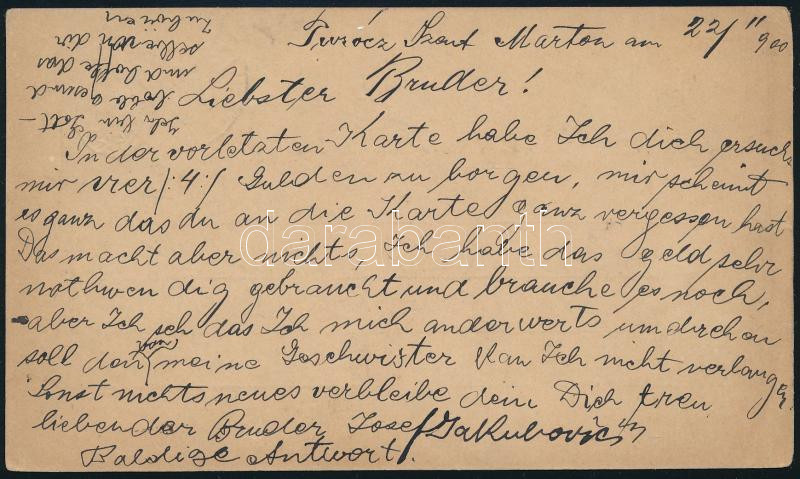 Turócz Szent Márton am 22/11 900
Liebster Bruder!
In der vorletzten Karte habe Ich dich ersucht
mir vier /:4:/ Gulden zu borgen, mir scheint
es ganz das du an die Karte ganz vergessen hast
Das macht aber nichts, Ich habe das geld sehr
nothwendig gebraucht und brauche es noch,
aber Ich seh das Ich mich anderwerts umdrehen
soll den von meine Geschwister kan Ich nicht verlangen
Sonst nichts neues verbleibe dein Dich treu
liebender Bruder Josef Jakubovics
Baldige Antwort.
Ich bin Gott
lob gesund
und hoffe das
selbe von dir
zu hören
darabanth